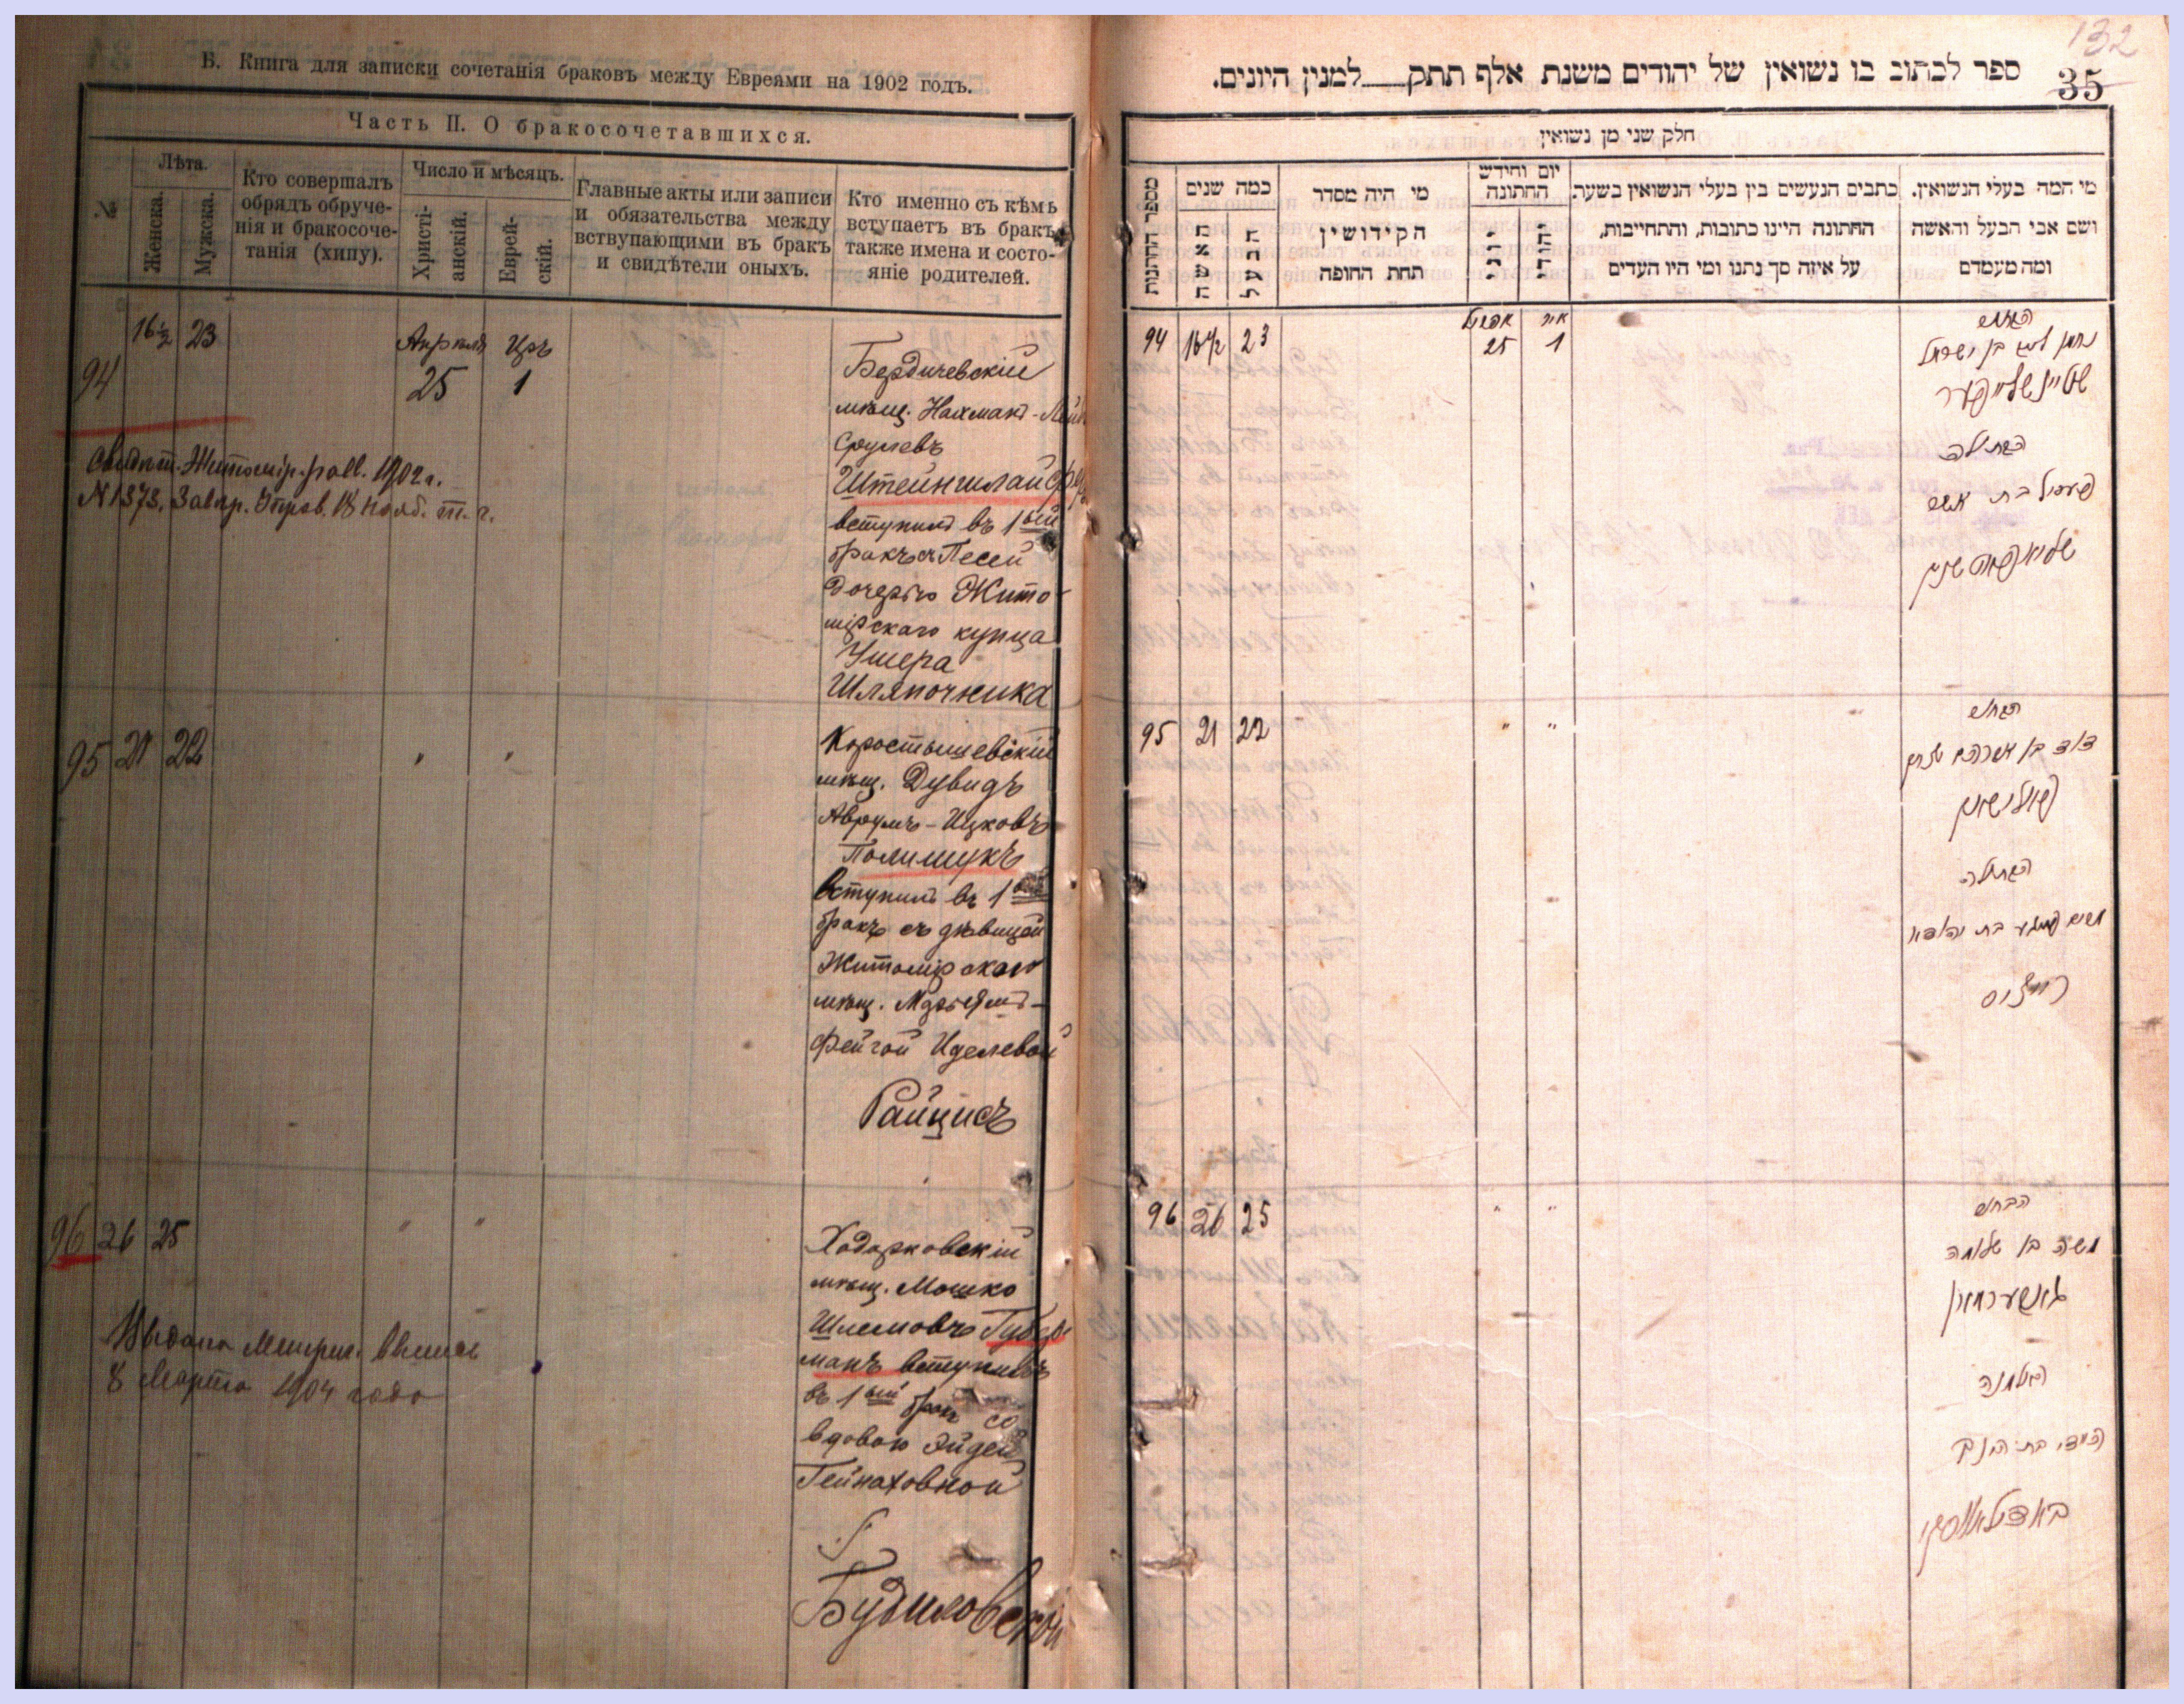 Б. Книга для записки сочетанія браковъ между Евреями на 1902 годъ.
Часть II. О бракосочетавшихся.
№
Лѣта.
Женска.
Мужска.
Кто совершалъ
обрядъ обруче-
нія и бракосоче-
танія (хипу).
Число и мѣсяцъ.
Христі-
анскій.
Еврей-
скій.
Главные акты или записи
и обязательства между
вствупающими въ бракъ
и свидѣтели оныхъ.
Кто именно съ кѣмъ
вступаетъ въ бракъ
также имена и состо-
яніе родителей.
94 16½ 23 Апрѣля 25 Іръ 1
Бердичевскій
мѣщ. Нахманъ-Лейб
Срулевъ
Штейншлайфер
вступилъ въ 1ый
бракъ съ Песей
дочерью Жито-
мірскаго купца
Ушера
Шляпочника
Свидѣт. Житомір. равв. 1902 г.
N 1373. Завѣр. Управ. 18 Нояб. т. г.
95 21 22 " "
Коростышевскій
мѣщ. Дувидъ
Аврумъ-Ицковъ
Полищукъ
вступилъ въ 1ый
бракъ съ дѣвицей
Житомірскаго
мѣщ. Марьямъ-
Фейгой Иделевой
Райцисъ
96 26 25 " "
Ходорковскій
мѣщ. Мошко
Шлемовъ Губер
манъ вступилъ
въ 1ый бракъ со
вдовою Эйдей
Гейнаховной
Будиловской
Выдана Метрич. выпись
8 Марта 1904 года
132
35
ספר לכתוב בו נשואין של יהודים משנת אלף תתק___למנין היונים.
חלק שני מן נשואין
מספר החתונות
כמה שנים
האשה
הבעל
מי היה מסדר
הקידושין
תחת החופה
יום וחידש
החתונה
יוני
יהודי
כתבים הנעשים בין בעלי הנשואין בשעת
החתונה היינו כתובות, והתחייבות,
על איזה סך נתנו ומי היו העדים
מי המה בעלי הנשואין.
ושם אבי הבעל והאשה
ומה מעמדם
94 16½ 23 אפריל 25 איר 1
הבחור
נחמן ליב בן ישראל
שטיינשלייפער
הבתולה
פעסיל בת אשר
95 21 22 " "
הבחור
דוד בן אברהם יצחק
פאלישוק
הבתולה
מרים פייגע בת יהודא
רייציס
96 26 25 " "
הבחור
משה בן שלמה
גובערמאן
האלמנה
היידי בת הינך
באדילאווסקי